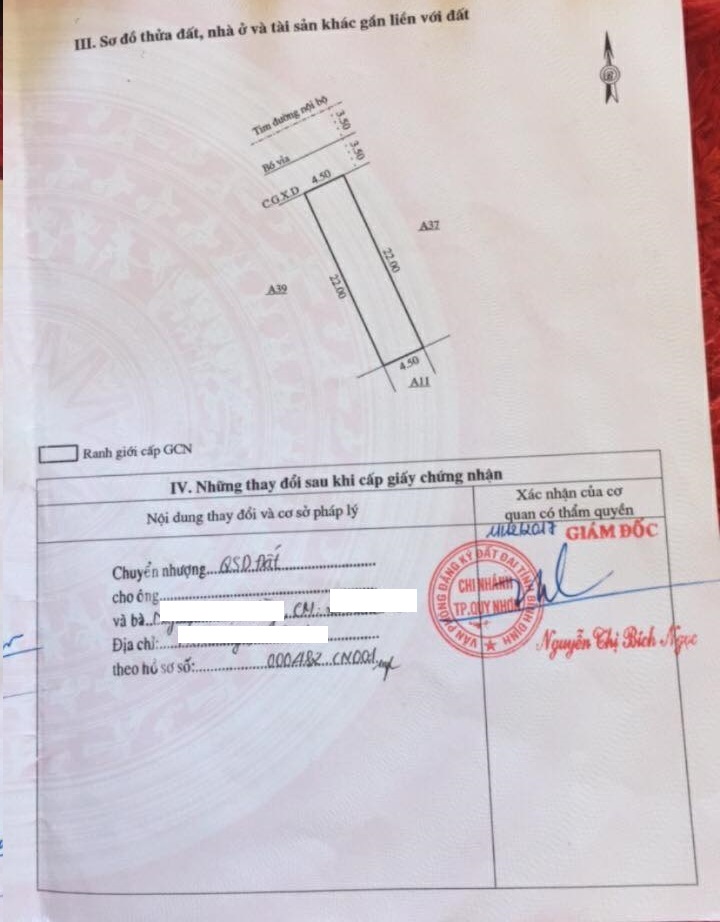 III. Sơ đồ thửa đất, nhà ở và tài sản khác gắn liền với đất
Tim đường nội bộ
3.50
Bó vỉa
3.50
C.G.X.D
4.50
A37
22.00
22.00
A39
4.50
A11
Ranh giới cấp GCN
IV. Những thay đổi sau khi cấp giấy chứng nhận
Nội dung thay đổi và cơ sở pháp lý
Xác nhận của cơ quan có thẩm quyền
GIÁM ĐỐC
Chuyển nhượng...QSD Đất
cho ông
và bà.. CM:
Địa chỉ:
theo hồ sơ số: CN001
VĂN PHÒNG ĐĂNG KÝ ĐẤT ĐAI TỈNH BÌNH ĐỊNH
CHI NHÁNH
TP.QUY NHƠN
Nguyễn Thị Bích Ngọc